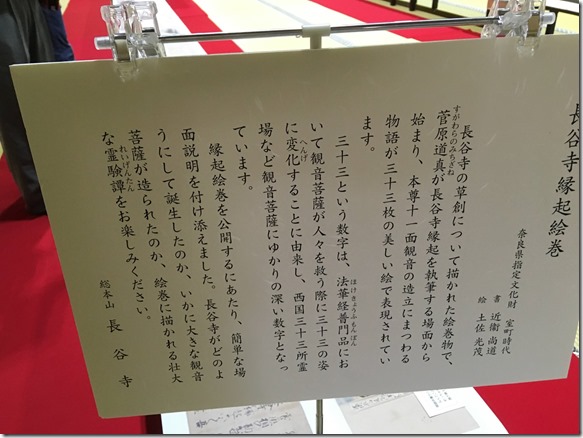 長谷寺縁起絵巻
奈良県指定文化財 室町時代
書 近衛尚道
絵 土佐光茂
長谷寺の草創について描かれた絵巻物で、
すがわらのみちざね
菅原道真が長谷寺縁起を執筆する場面から
始まり、本尊十一面観音の造立にまつわる
物語が三十三枚の美しい絵で表現されてい
ます。
三十三という数字は、法華経普門品にお
ほけきょうふもんぼん
いて観音菩薩が人々を救う際に三十三の姿
へんげ
に変化することに由来し、西国三十三所霊
場など観音菩薩にゆかりの深い数字となっ
ています。
縁起絵巻を公開するにあたり、簡単な場
面説明を付け添えました。長谷寺がどのよ
うにして誕生したのか、いかに大きな観音
菩薩が造られたのか、絵巻に描かれる壮大
れいげんたん
な霊験譚をお楽しみください。
総本山 長谷寺